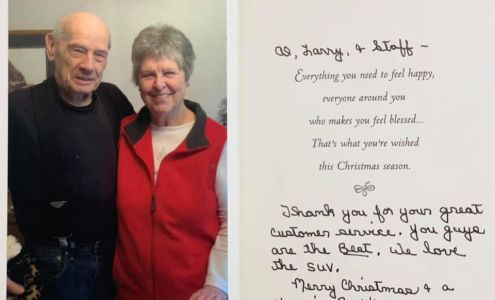 Al, Larry, & Staff -
Everything you need to feel happy,
everyone around you
who makes you feel blessed...
That's what you're wished
this Christmas season.
Thank you for your great
customer service. You guys
are the Best. We love
the SUV.
Merry Christmas & a